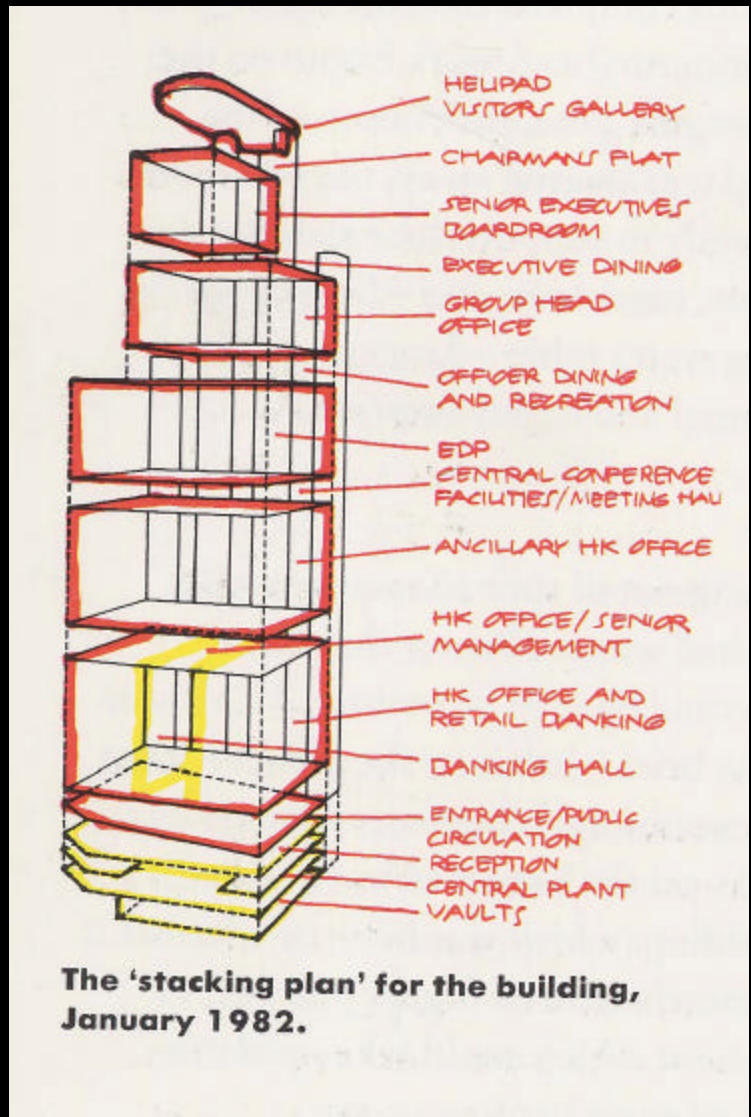 HELIPAD
VISITORS GALLERY
CHAIRMANS FLAT
SENIOR EXECUTIVES
BOARDROOM
EXECUTIVE DINING
GROUP HEAD
OFFICE
OFFICER DINING
AND RECREATION
EDP
CENTRAL CONFERENCE
FACILITIES/MEETING HALL
ANCILLARY HK OFFICE
HK OFFICE/SENIOR
MANAGEMENT
HK OFFICE AND
RETAIL BANKING
BANKING HALL
ENTRANCE/PUBLIC
CIRCULATION
RECEPTION
CENTRAL PLANT
VAULTS
The ‘stacking plan’ for the building,
January 1982.